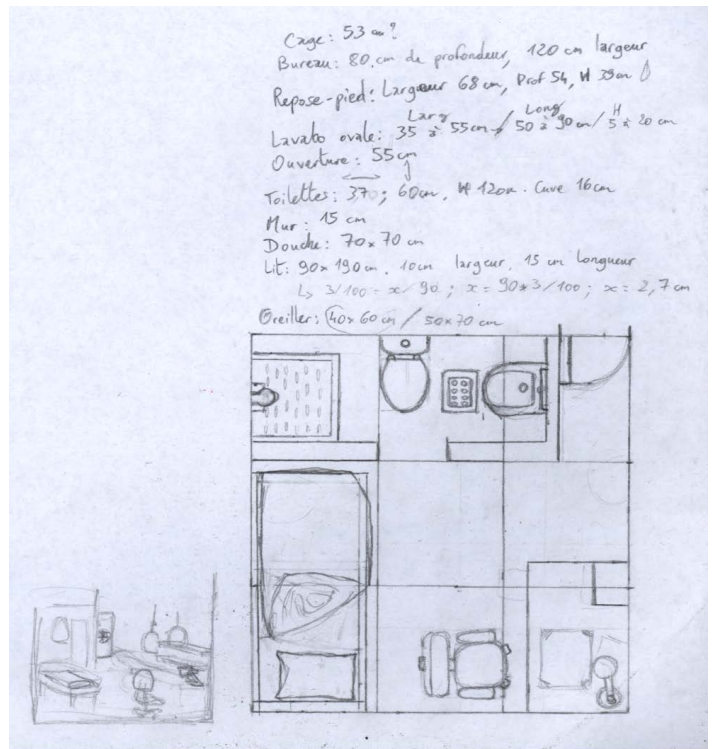 Cage: 53 cm?
Bureau: 80 cm de profondeur, 120 cm largeur
Repose-pied: Largeur 68 cm, Prof 54, H 39cm
Larg Long H
Lavabo ovale: 35 à 55cm / 50 à 90cm / 5 à 20 cm
Ouverture: 55cm
Toilettes: 37; 60cm, H 120cm. Cuve 16cm
Mur: 15 cm
Douche: 70x70 cm
Lit: 90x190cm, 10cm largeur, 15 cm longueur
↳ 3/100 = x/90; x = 90*3/100; x = 2,7 cm
Oreiller: 40x60 cm / 50x70 cm